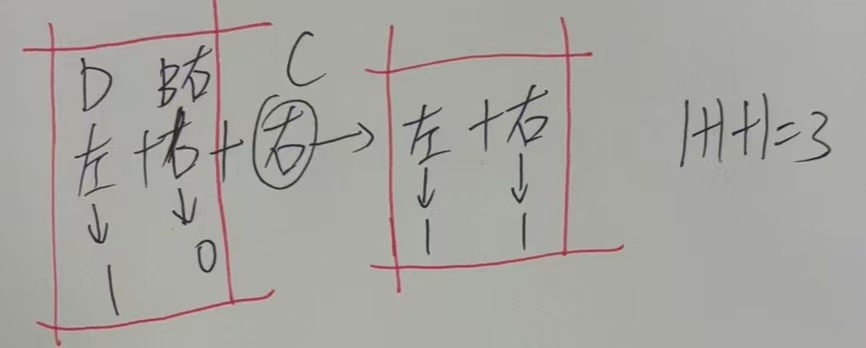 D B右 C
左+右+右→左+右 1+1+1=3
↓ ↓ ↓ ↓
1 0 1 1